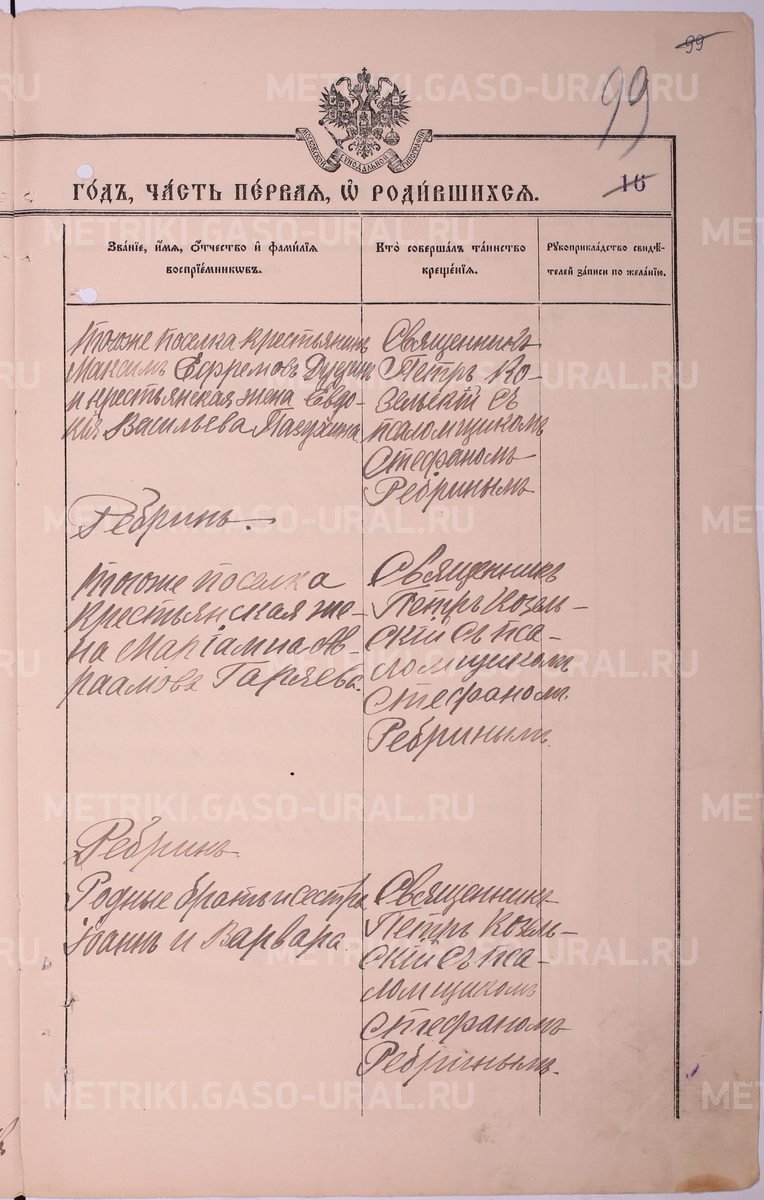 99
99
МОСКОВСКОЙ СѴНОДАЛЬНОЙ ТИПОГРАФІИ
ГО́ДЪ, ЧА́СТЬ ПЕ́РВАЯ, Ѡ҆ РОДИ́ВШИХСЯ.
16
Зва́нїе, и҆́мя, ѻ҆́тчество и҆ фами́лїя
воспрїе́мникѡвъ.
Кто̀ соверша́лъ та́инство
креще́нїя.
Рꙋкоприкла́дство свидѣ́-
телей за́писи по жела́нїю.
Того же поселка крестьянинъ
Максимъ Ефремовъ Дудинъ
и крестьянская жена Евдо-
кія Васильева Пазухина
Священникъ
Петръ Ко-
зельскій съ
псаломщикомъ
Стефаномъ
Ребринымъ
Ребринъ.
Того же поселка
крестьянская же-
на Маріамна Ав-
раамова Гаряева.
Священникъ
Петръ Козель-
скій съ пса-
ломщикомъ
Стефаномъ
Ребринымъ.
Ребринъ.
Родные братъ и сестра
Іоаннъ и Варвара.
Священникъ
Петръ Козель-
скій съ пса-
ломщикомъ
Стефаномъ
Ребринымъ.
METRIKI.GASO-URAL.RU